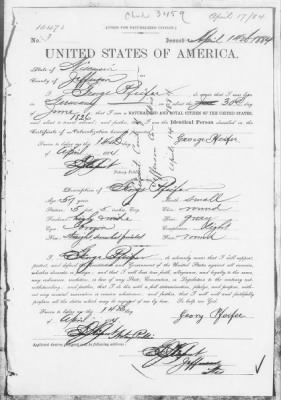 Chd 3459
April 17/84
10471
(FORM FOR NATURALIZED CITIZEN.)
No. 3 Issued April 18th 1884
UNITED STATES OF AMERICA.
State of Wisconsin
County of Jefferson
I, George Pfeifer do swear that I was born
in Germany on the 30th
June 1826 that I am a NATURALIZED AND LOYAL CITIZEN OF THE UNITED STATES,
and that I am the Identical Person described in the
Certificate of Naturalization
George Pfeifer
Sworn to before me this 14th day
of April 1884
Notary Public
Description of George Pfeifer
Age: 57 years Mouth: small
Stature: 5 feet, 5 inches, Eng. Chin: round
Forehead: high Hair: grey
Eyes: brown Complexion: light
Nose: Face: round
I, George Pfeifer do solemnly swear that I will support,
protect, and defend the Constitution and Government of the United States against all enemies,
whether domestic or foreign; and that I will bear true faith, allegiance, and loyalty to the same,
any ordinance, resolution, or law of any State, Convention, or Legislature to the contrary not-
withstanding; and further, that I do this with a full determination, pledge, and purpose, with-
out any mental reservation or evasion whatsoever; and further, that I will well and faithfully
perform all the duties which may be required of me by law. So help me God.
Sworn to before me this 14th day
George Pfeifer
of April 1884
Notary Public
Applicant desires passport sent to following address:
Jefferson
Wis